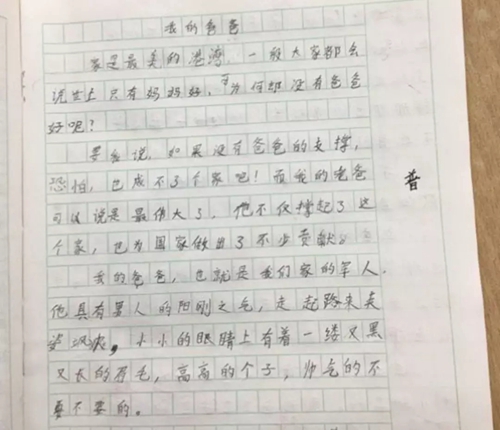 我的爸爸
家是最美的港湾,一般大家都会
说世上只有妈妈好,可为何却没有爸爸
好呢?
要我说,如果没有爸爸的支撑,
恐怕,也成不了个家吧!而我的老爸
可以说是最伟大了,他不仅撑起了这
个家,也为国家做出了不少贡献。
我的爸爸,也就是我们家的军人,
他具有男人的阳刚之气,走起路来英
姿飒爽,小小的眼睛上有着一缕又黑
又长的眉毛,高高的个子,帅气的不
要不要的。
普